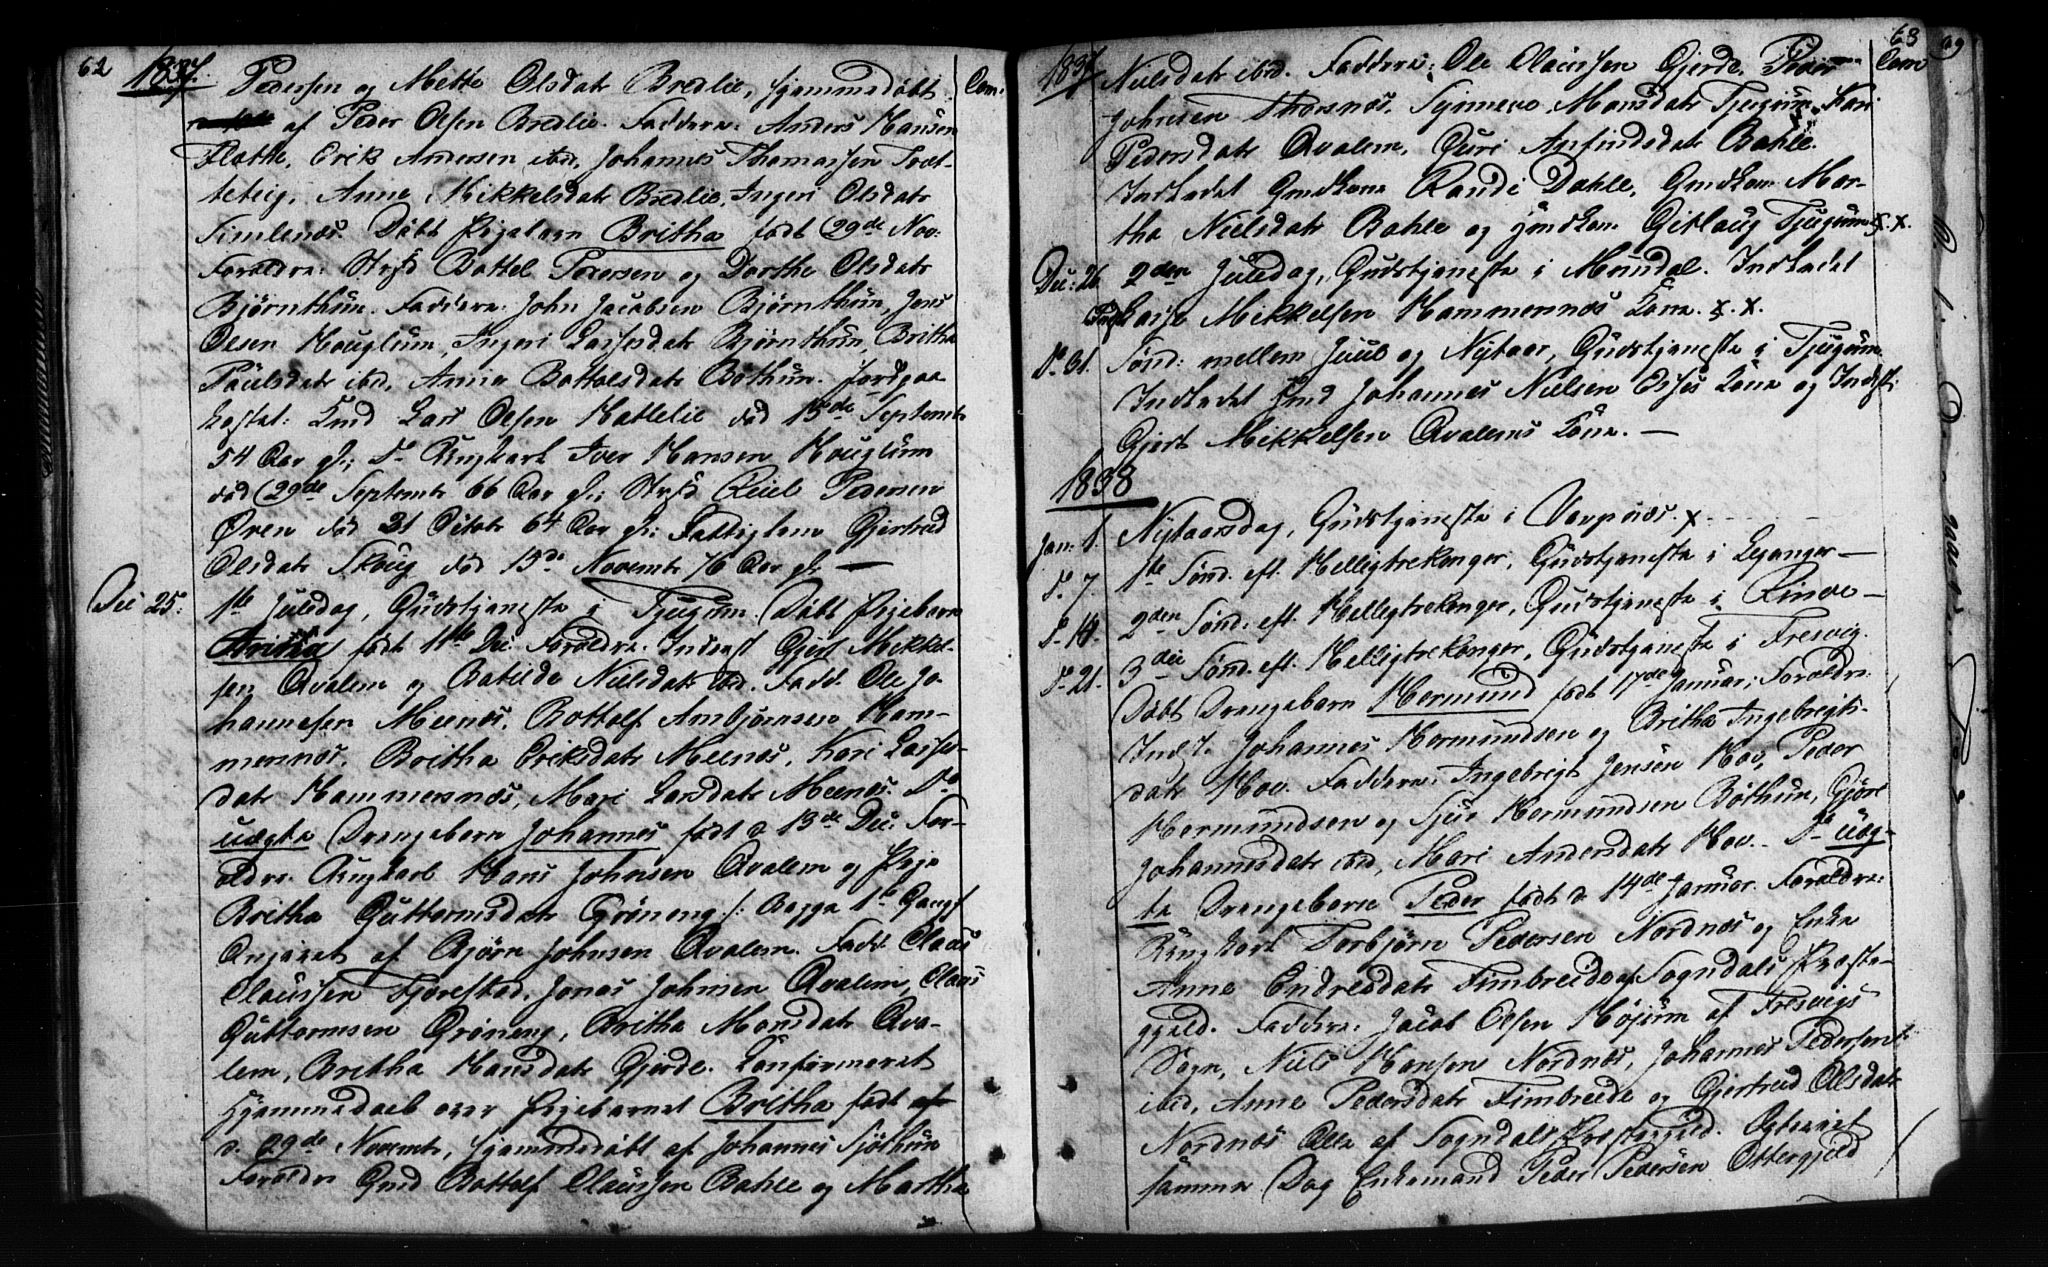 62 1837.
Pedersen og Mette Olsdatr Bredlie, hjemmedøbt Com:
af Peder Olsen Bredlie. Faddere: Anders Hansen
Flathe, Erik Andersen ibid, Johannes Thomassen Tret-
teteig, Anna Mikkelsdatr Bredlie, Ingeri Olsdatr
Simlenæs. Døbt Pigebarn Britha født 29de Nov:
Forældre: Bottel Pedersen og Dorthe Olsdatr
Bjørnthun. Faddere: John Jacobsen Bjørnthun, Jens
Olsen Houglum, Ingeri Lassesdatr Bjørnthun, Britha
Paulsdatr ibid, Anna Bottolsdatr Bøthun. Jordpaa
kastet: Gmd Lars Olsen Hatlelie død 15de Septembr
54 Aar gl; Do Ungkarl Iver Hansen Houglum
død 29de Septembr 66 Aar gl; Pedersen
Øren død 21 Octobr 64 Aar gl; Fattiglem Gjertrud
Olsdatr Skoug død 15de Novembr 76 Aar gl. —
Dec 25: 1te Juledag, Gudstjeneste i Tjugum. Døbt Pigebarn
født 11te Dec: Forældre: Inderst Gjert Mikkel-
sen Qvalem og Batilde Nielsdatr ibid. Fadd: Ole Jo-
hannesen Meenæs, Bottolf Ambjørnsen Ham-
mersnæs, Britha Eriksdatr Meenæs, Kari Lasses-
datr Hammersnæs, Mari Larsdatr Meenæs. Do
uægte Drengebarn Johannes født d 13de Dec: For-
ældre: Ungkarl Hans Johnsen Qvalem og Pige
Britha Guttormsdatr Grøneng /: Begges 1te Gang
Angivet af Bjørn Johnsen Qvalem. Fadd: Claus
Olaussen Fjærestad, Jonas Johnsen Qvalem, Claus
Guttormsen Grøneng, Britha Monsdatr Qva-
lem, Britha Hansdatr Gjerde. Confirmeret
Hjemmedaab over Pigebarnet Britha født
d. 29de Novembr, hjemmedøbt af Johannes Sjøthun
Forældr: Gmd Bottolf Olaussen Bahle og Martha
63
1837 Nielsdatr ibid. Faddere: Ole Olaussen Gjerde, Peder Com
Johnsen Thorsnæs, Synneve Monsdatr Tjugum, Kari
Pedersdatr Qvalem, Guri Anfindsdatr Bahle.
Indledet Gmdkone Randi Dahle, Gmdkon: Mar-
tha Nielsdatr Bahle og Gmdkon: Gitlaug Tjugum. x. x.
Dec: 26. 2den Juledag, Gudstjeneste i Mundal. Indledet
Mikkelsen Hammersnæs Kone. x. x.
Do 31. Sønd: mellem Juul og Nytaar, Gudstjeneste i Tjugum.
Indledet Gmd Johannes Nielsen Esses Kone og Indst:
Gjert Mikkelsen Qvalems Kone. —
1838
Jan: 1. Nytaarsdag, Gudstjeneste i Vangsnæs. x
Do 7. 1te Sønd. eft. Helligtrekonger, Gudstjeneste i Leganger —
Do 14. 2den Sønd. eft. Helligtrekonger, Gudstjeneste i Rinde —
Do 21. 3die Sønd. eft. Helligtrekonger, Gudstjeneste i Fresvig.
Døbt Drengebarn Hermund født 17de Januar; Forældre:
Indst. Johannes Hermundsen og Britha Ingebrigts-
datr Hov. Faddere: Ingebrigt Jensen Hov, Peder
Hermundsen og Sjur Hermundsen Bøthun, Gjøri
Johannesdatr ibid, Mari Andersdatr Hov. Do uæg-
te Drengebarn Peder født d 14de Januar. Forældre:
Ungkarl Torbjørn Pedersen Nordnæs og Enke
Anne Endresdatr Fimbreide af Sogndals Præste-
gjeld. Faddere: Jacob Olsen Højum af Fresvigs
Sogn, Niels Hansen Nordnæs, Johannes Pedersen
ibid, Anne Pedersdatr Fimbreide og Gjertrud Olsdatr
Nordnæs Alle af Sogndals Præstegjeld. Ægteviet
samme Dag Enkemand Peder Pedersen Ottergjeld